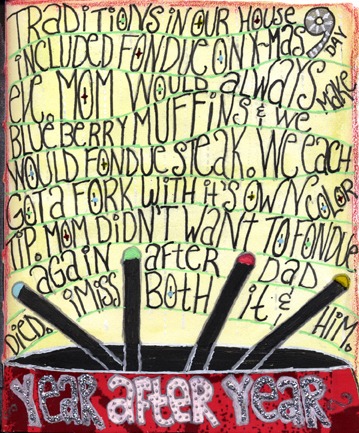 TRADITIONS IN OUR HOUSE
INCLUDED FONDUE ON X-MAS
9
DAY
EVE. MOM WOULD always
MAKE
BLUEBERRY MUFFINS & WE
WOULD FONDUE STEAK. WE EACH
GOT A FORK WITH it's OWN COLOR
TIP. MOM DIDN'T WANT TO FONDUE
again AFTER DAD
DIED. i MISS BOTH it & HIM.
YEAR aFTER YEAR